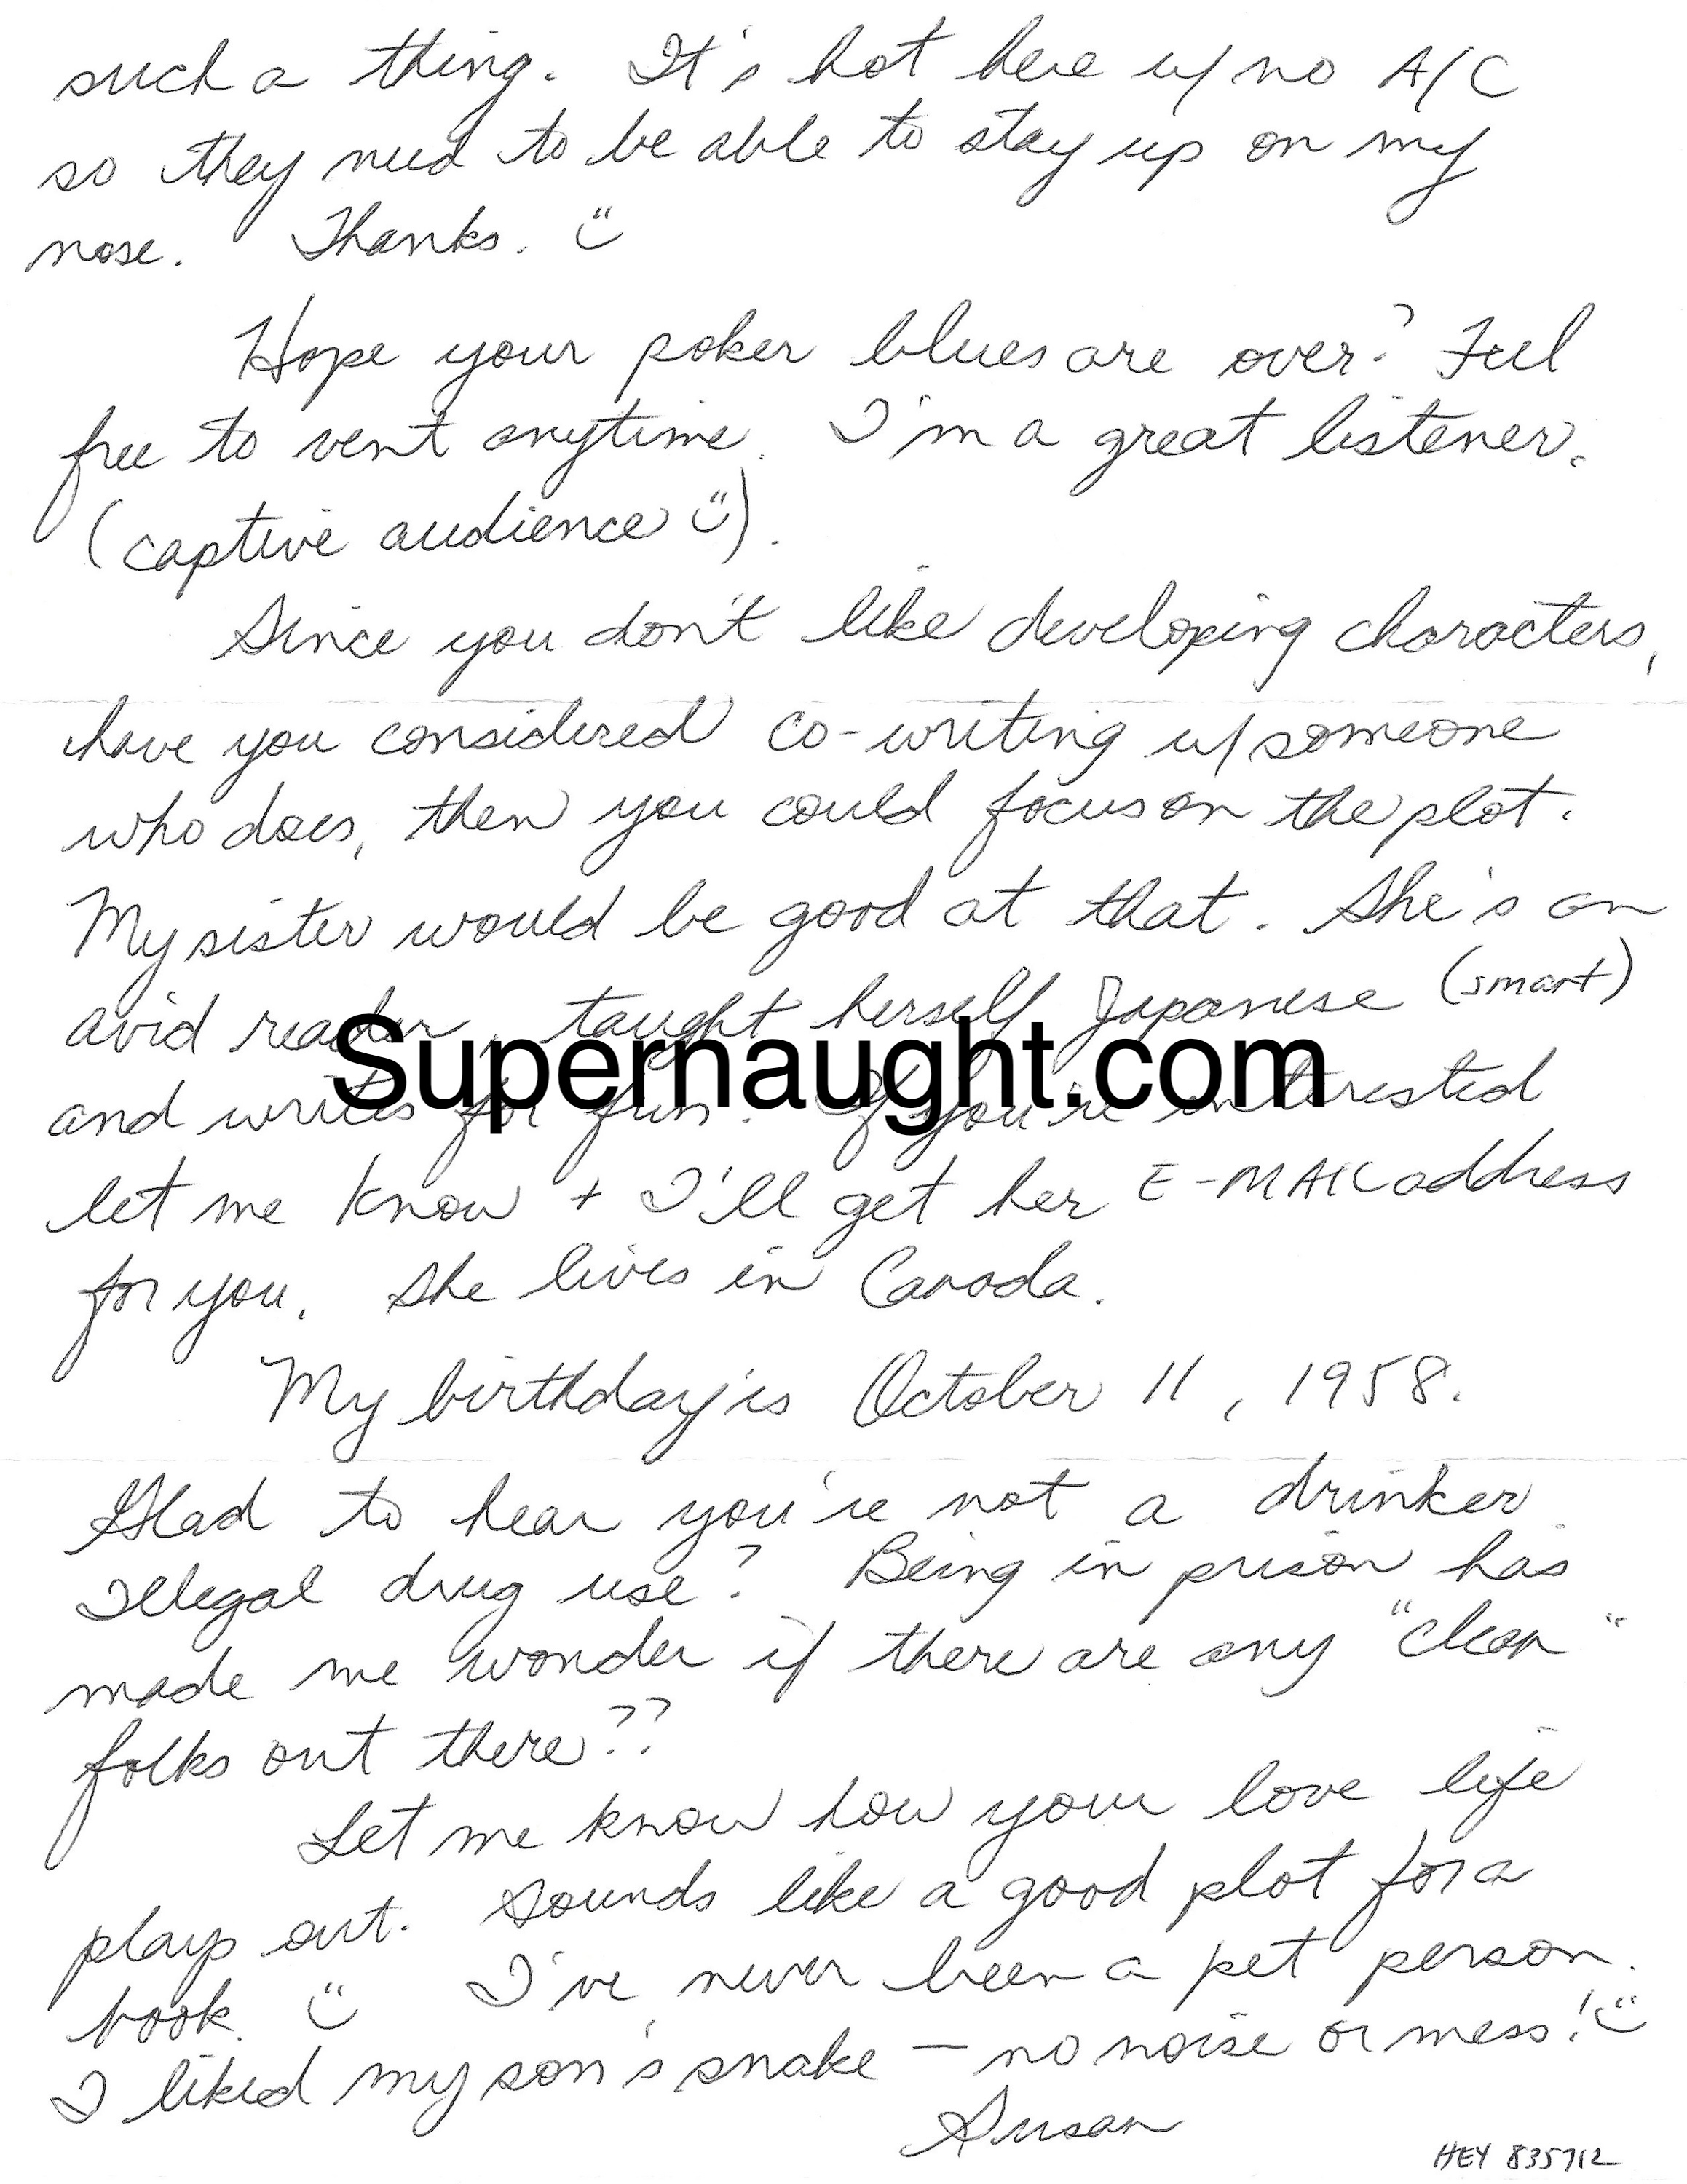 such a thing. It's hot here w/ no A/C
so they need to be able to stay up on my
nose. Thanks. ü
Hope your poker blues are over? Feel
free to vent anytime. I'm a great listener.
(captive audience ü).
Since you don't like developing characters,
have you considered co-writing w/ someone
who does, then you could focus on the plot.
My sister would be good at that. She's an
avid reader, taught herself Japanese (smart)
Supernaught.com
and writes for fun. If you're interested
let me know + I'll get her E-MAIL address
for you. She lives in Canada.
My birthday is October 11, 1958.
Glad to hear you're not a drinker.
Illegal drug use? Being in prison has
made me wonder if there are any "clean"
folks out there??
Let me know how your love life
plays out. Sounds like a good plot for a
book. ü I've never been a pet person.
I liked my son's snake — no noise or mess! ü
Susan
HEY 835712